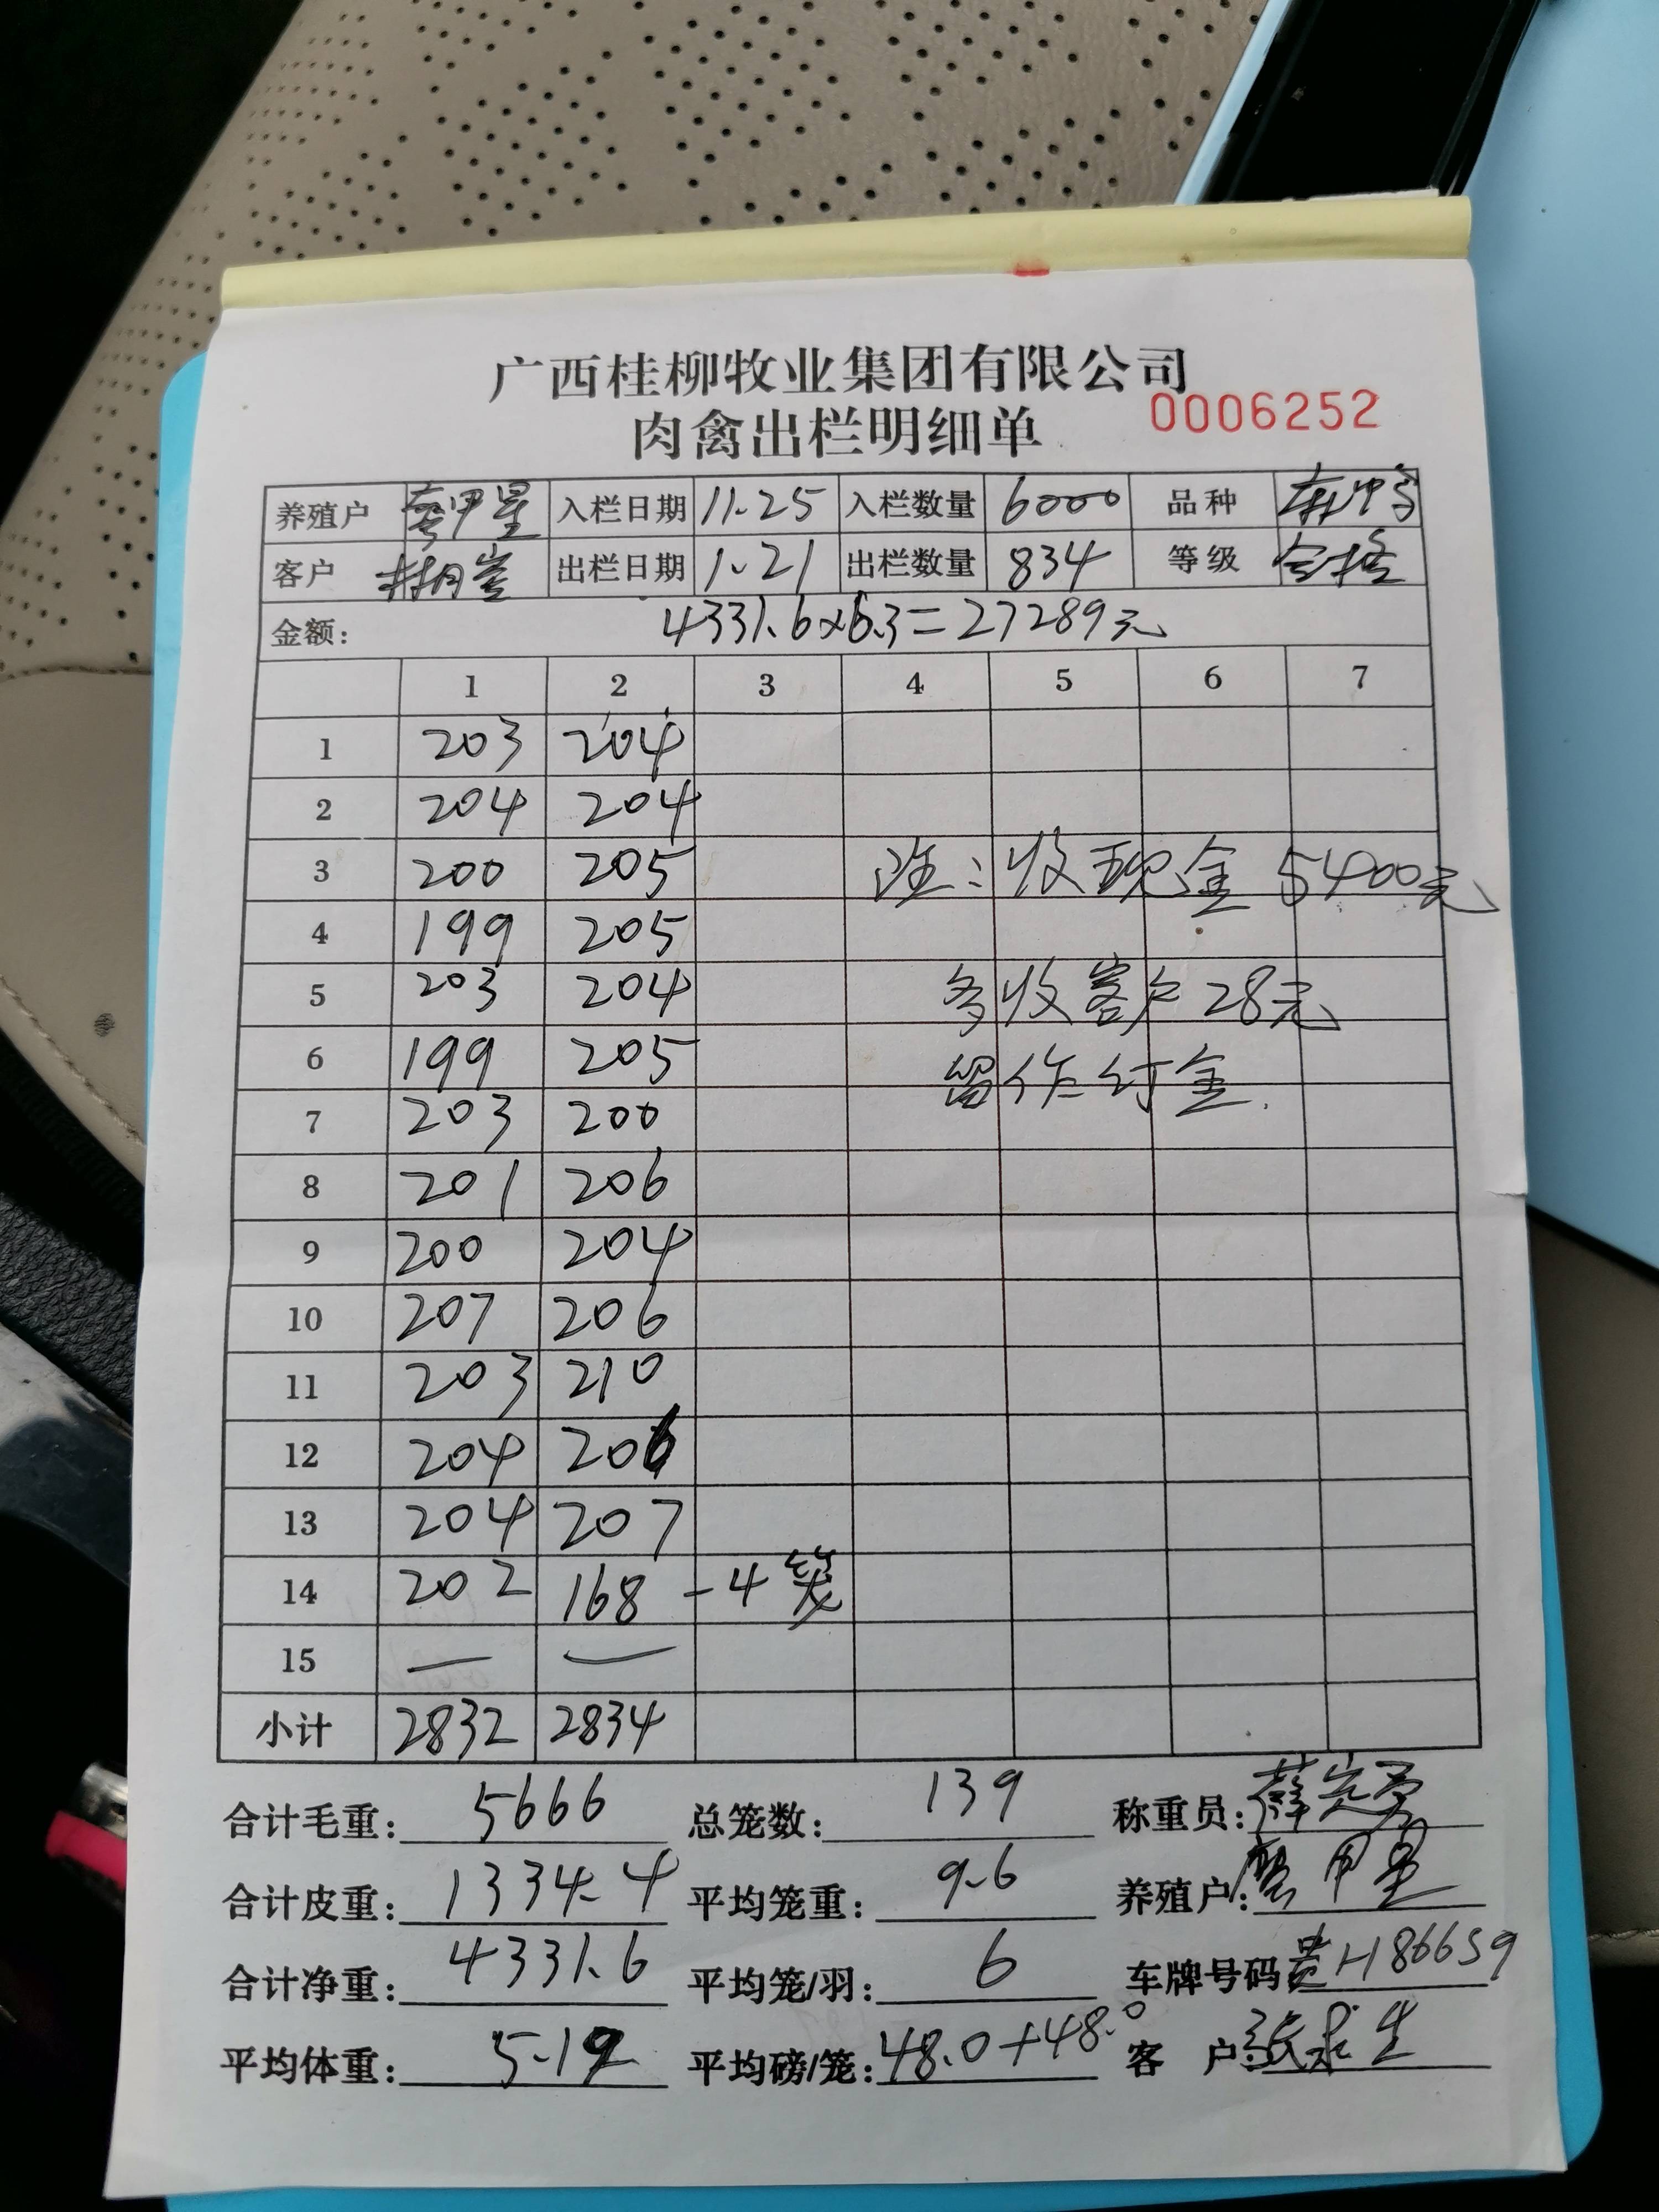 广西桂柳牧业集团有限公司
肉禽出栏明细单 0006252
养殖户 甲星 入栏日期 11.25 入栏数量 6000 品种
客户 出栏日期 1.21 出栏数量 834 等级 合格
金额: 4331.6×6.3=27289元
1 2 3 4 5 6 7
1 203 204
2 204 204
3 200 205 注:收现金5400元
4 199 205
5 203 204 多收客户28元
6 199 205 留作订金.
7 203 200
8 201 206
9 200 204
10 207 206
11 203 210
12 204 206
13 204 207
14 202 168 -4笼
15 — —
小计 2832 2834
合计毛重: 5666 总笼数: 139 称重员:薛
合计皮重: 1334.4 平均笼重: 9.6 养殖户: 甲星
合计净重: 4331.6 平均笼/羽: 6 车牌号码 贵H86659
平均体重: 5.19 平均磅/笼: 48.0+48.0 客 户 张